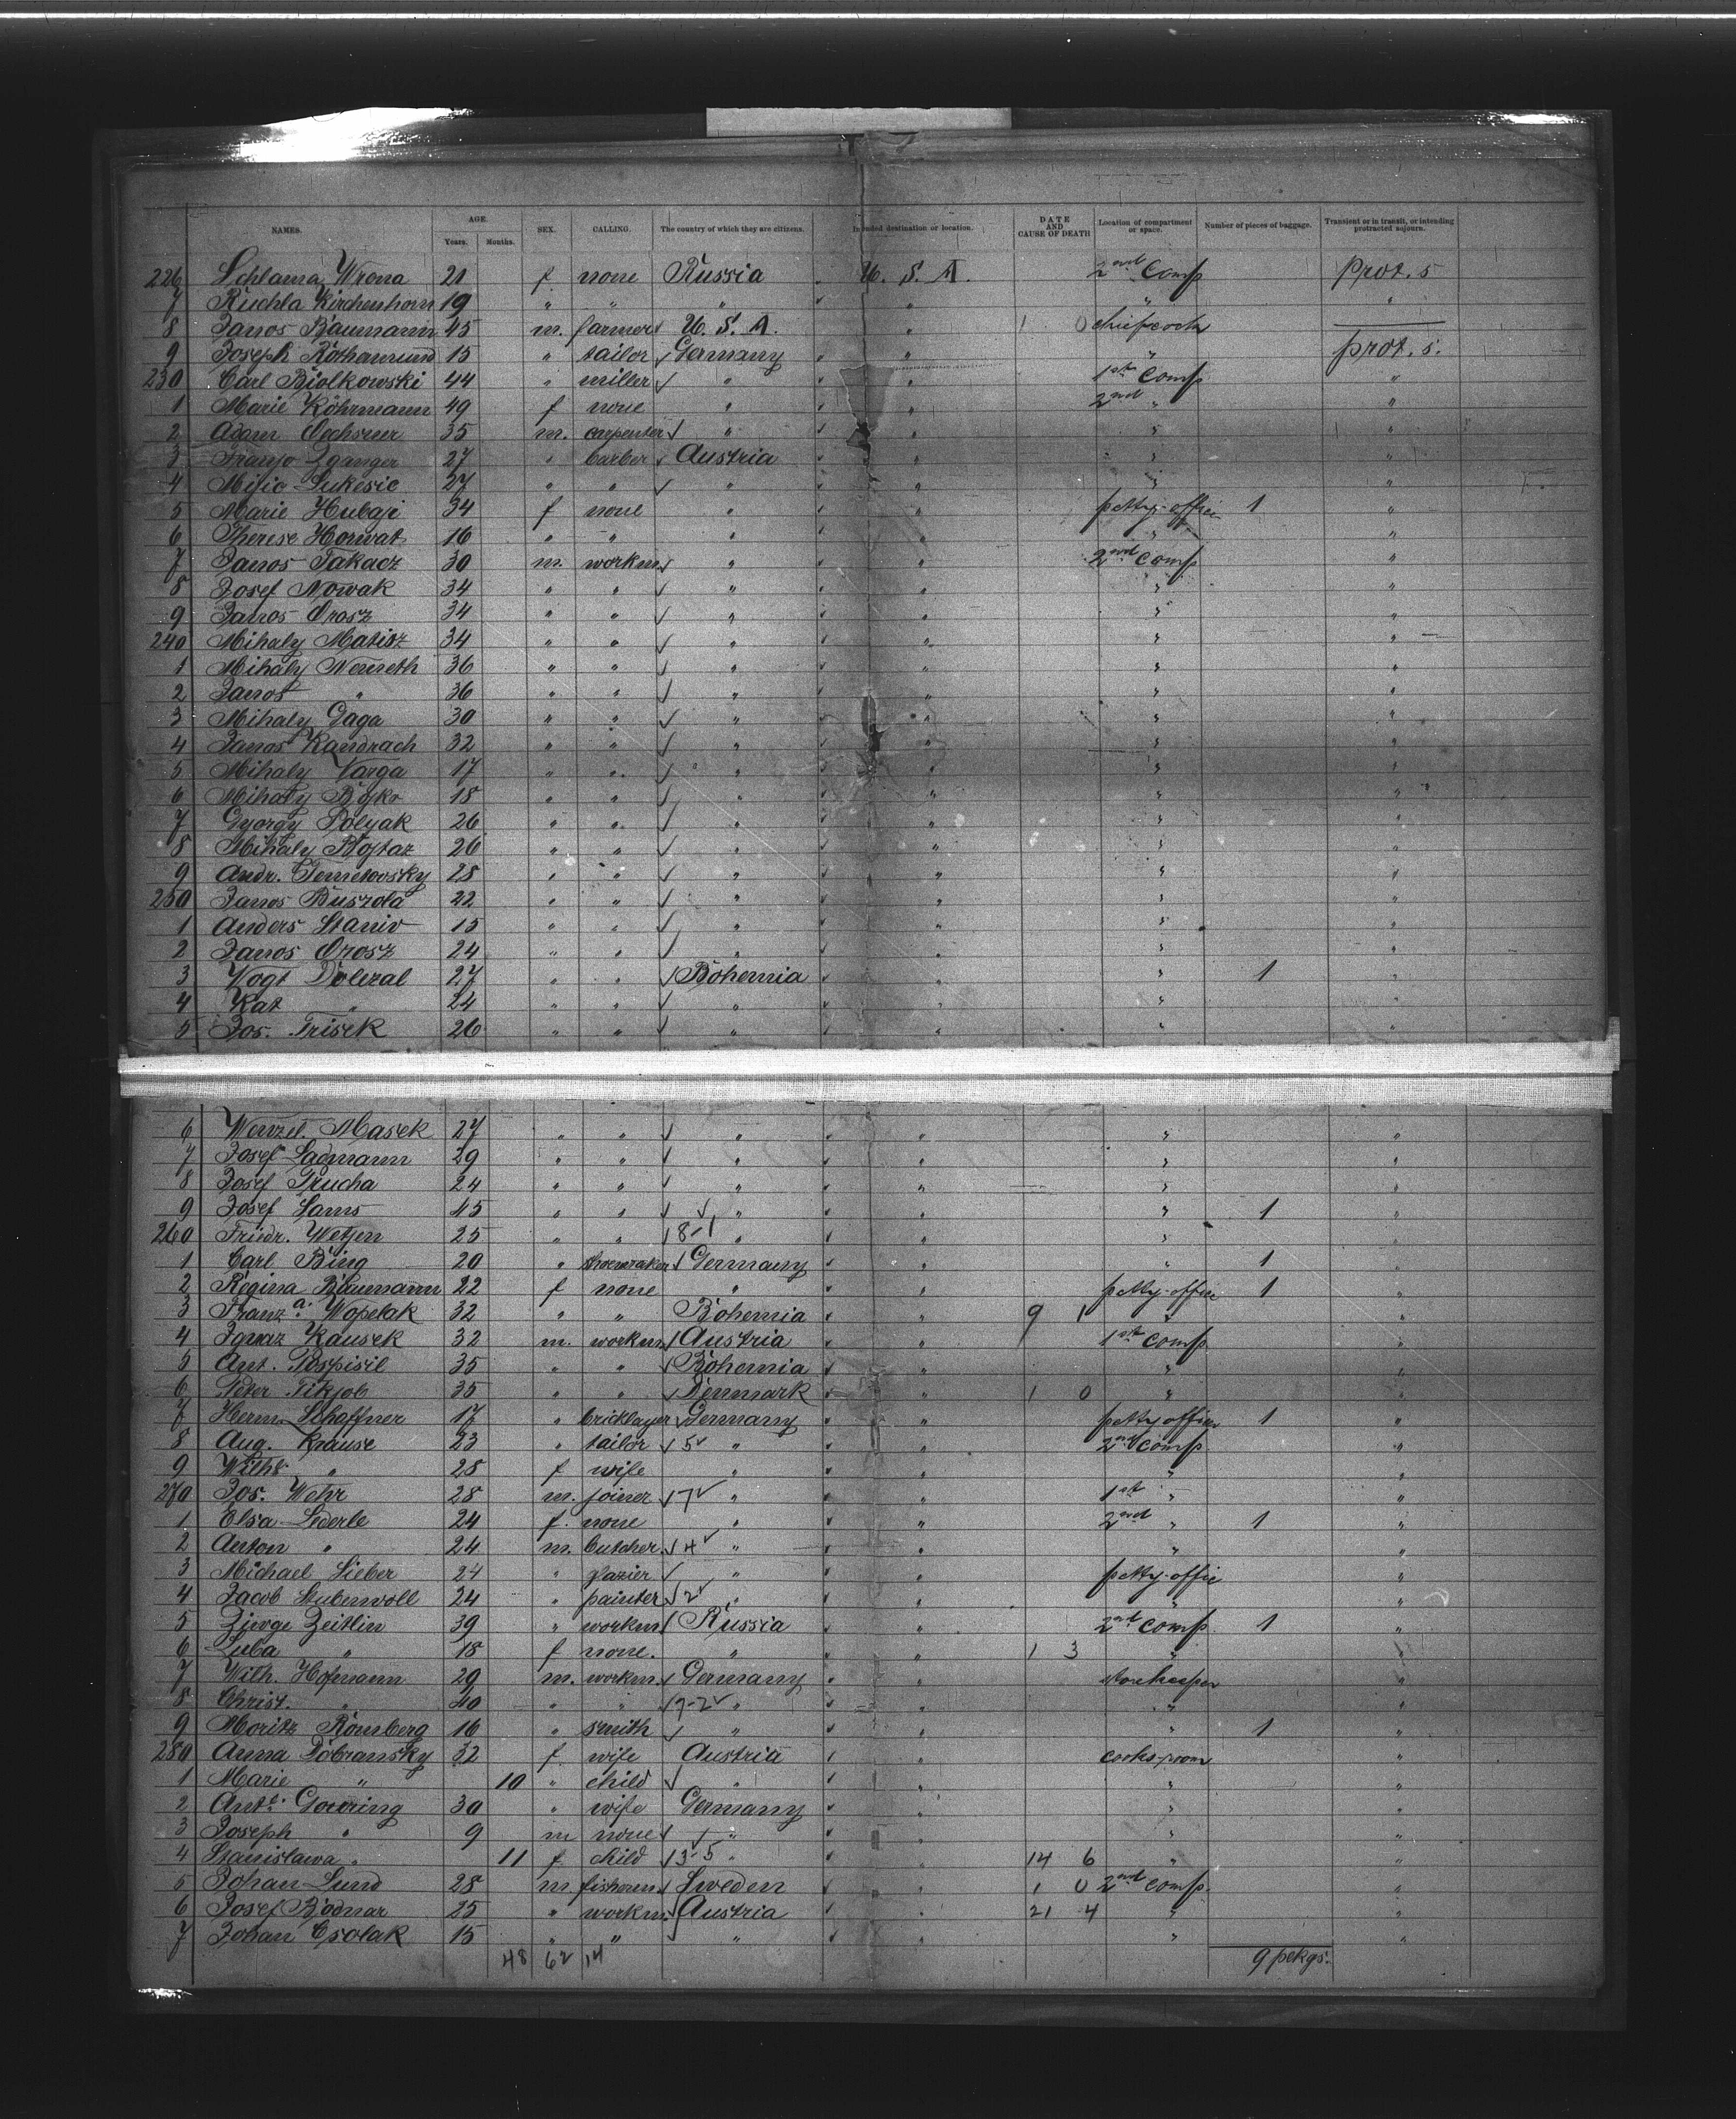 NAMES. AGE. Years. Months. SEX. CALLING. The country of which they are citizens. Intended destination or location. DATE AND CAUSE OF DEATH Location of compartment or space. Number of pieces of baggage. Transient or in transit, or intending protracted sojourn.
226 Schlama Wrona 21 f. none Russia " U. S. A. 2nd Comp Prot. s
7 Ruchla Kirchenhorn 19 " " " " " " "
8 Janos Baumann 45 m. farmer U. S. A. " 1 0 chiefcook
9 Joseph Rothamund 15 " tailor Germany " " " prot. s.
230 Carl Biolkowski 44 " miller " " 1st Comp "
1 Marie Köhrmann 49 f none " " 2nd " "
2 Adam Oechsner 35 m. carpenter " " " "
3 Franjo Zganger 27 " barber Austria " " "
4 Mijio Lukesic 27 " " " " " "
5 Marie Hubaji 34 f none " " petty-office 1 "
6 Therese Horwat 16 " " " " " "
7 Janos Takacz 30 m. workm. " " 2nd Comp "
8 Josef Nowak 34 " " " " " "
9 Janos Orosz 34 " " " " " "
240 Mihaly Matisz 34 " " " " " "
1 Mihaly Nemeth 36 " " " " " "
2 Janos " 36 " " " " " "
3 Mihaly Gaga 30 " " " " " "
4 Janos Kandrach 32 " " " " " "
5 Mihaly Varga 17 " " " " " "
6 Mihaly Bojko 18 " " " " " "
7 Gyorgy Polyak 26 " " " " " "
8 Mihaly Bojtar 26 " " " " " "
9 Andr. 28 " " " " " "
250 Janos Buszola 22 " " " " " "
1 Anders Staniv 15 " " " " " "
2 Janos Orosz 24 " " " " " "
3 Vogt Dolezal 27 " " Bohemia " " 1 "
4 Kat " 24 " " " " " "
5 Jos. Trisek 26 " " " " " "
6 Wenzel Masek 27 " " " " " "
7 Josef Ladmann 29 " " " " " "
8 Josef Prucha 24 " " " " " "
9 Josef Sams 45 " " " " " 1 "
260 Friedr. Wetjen 25 " " 8-1 " " " "
1 Carl Bing 20 " shoemaker Germany " " 1 "
2 Regina Blumann 22 f none " " petty-office 1 "
3 Franza. Wopelak 32 " " Bohemia " 9 1 " "
4 Ignaz Kausek 32 m. workm. Austria " 1st comp. "
5 Ant. Pospisil 35 " " Bohemia " " "
6 Peter Fikjob 35 " " Denmark " 1 0 " "
7 Herm. Schaffner 17 " bricklayer Germany " petty-office 1 "
8 Aug. Krause 23 " tailor 5 " " 2nd comp. "
9 Wilh. " 25 f wife " " " "
270 Jos. Wehr 28 m. joiner 7 " " 1st " "
1 Elsa Lederle 24 f. none " " 2nd " 1 "
2 Anton " 24 m. butcher. 4 " " " "
3 Michael Sieber 24 " glazier " " petty-office "
4 Jacob Stubenvoll 24 " painter 2 " " " "
5 Ziwge Zeitlin 39 " workm. Russia " 2nd comp. 1 "
6 Luba " 18 f none. " " 1 3 " "
7 Wilh. Hofmann 29 m. workm. Germany " storekeeper "
8 Christ. " 40 " " 7-2 " " " "
9 Moritz Römberg 16 " smith " " " 1 "
280 Anna Dobransky 32 f. wife Austria " cooks-room "
1 Marie " 10 " child " " " "
2 Ante. Gowring 30 " wife Germany " " "
3 Joseph " 9 m none " " " "
4 Stanislawa " 11 f. child 3-5 " " 14 6 " "
5 Johan Lund 28 m. fisherm. Sweden " 1 0 2nd comp. "
6 Josef Bodnar 25 " workm. Austria " 21 4 " "
7 Johan Csolak 15 " " " " " "
48 62 14 9 pckgs.